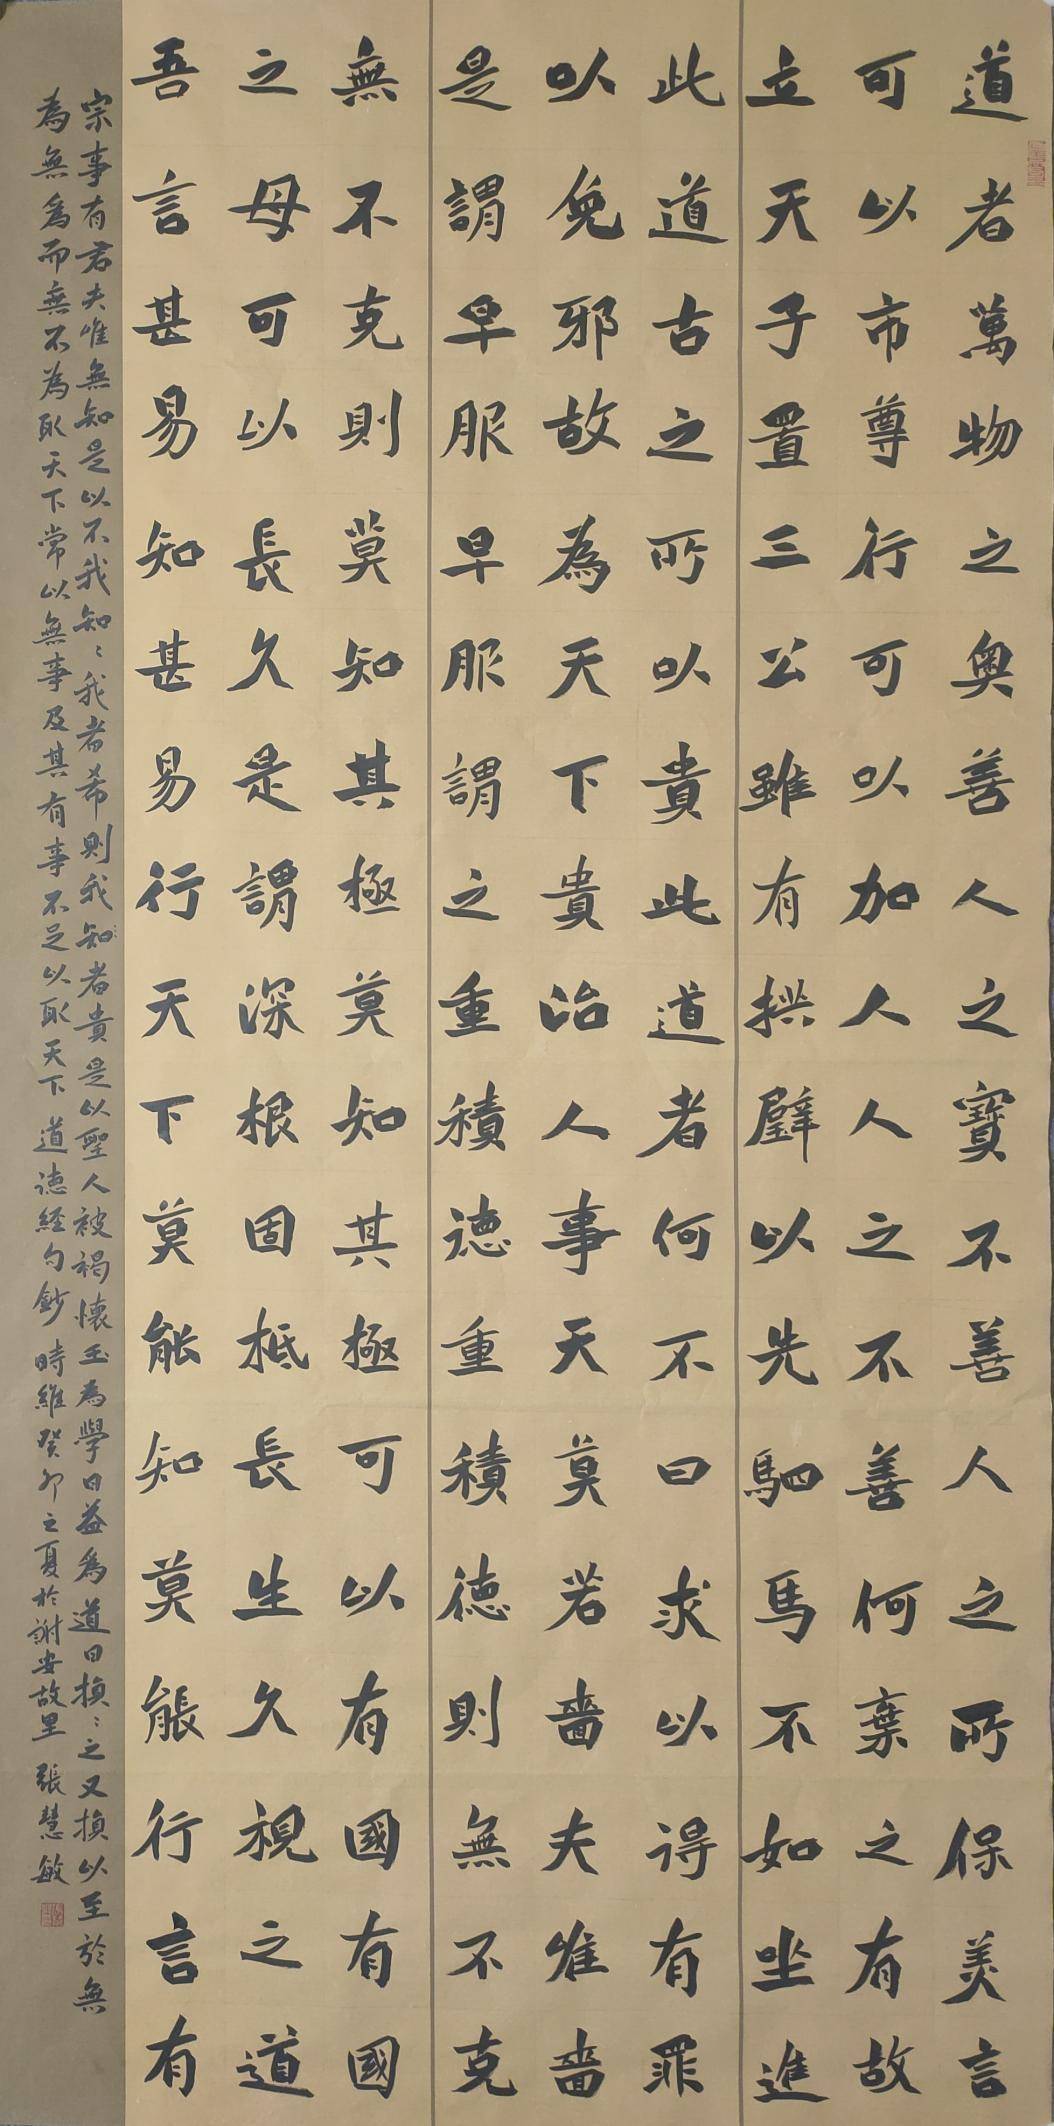 道者萬物之奥善人之寶不善人之所保美言
可以市尊行可以加人人之不善何棄之有故
立天子置三公雖有拱璧以先駟馬不如坐進
此道古之所以貴此道者何不曰求以得有罪
以免邪故為天下貴治人事天莫若嗇夫唯嗇
是謂早服早服謂之重積德重積德則無不克
無不克則莫知其極莫知其極可以有國有國
之母可以長久是謂深根固柢長生久視之道
吾言甚易知甚易行天下莫能知莫能行言有
宗事有君夫唯無知是以不我知〻我者希則我知者貴是以聖人被褐懷玉為學日益為道日損〻之又損以至於無
為無為而無不為取天下常以無事及其有事不足以取天下 道德經句鈔 時維癸卯之夏於謝安故里 張慧敏